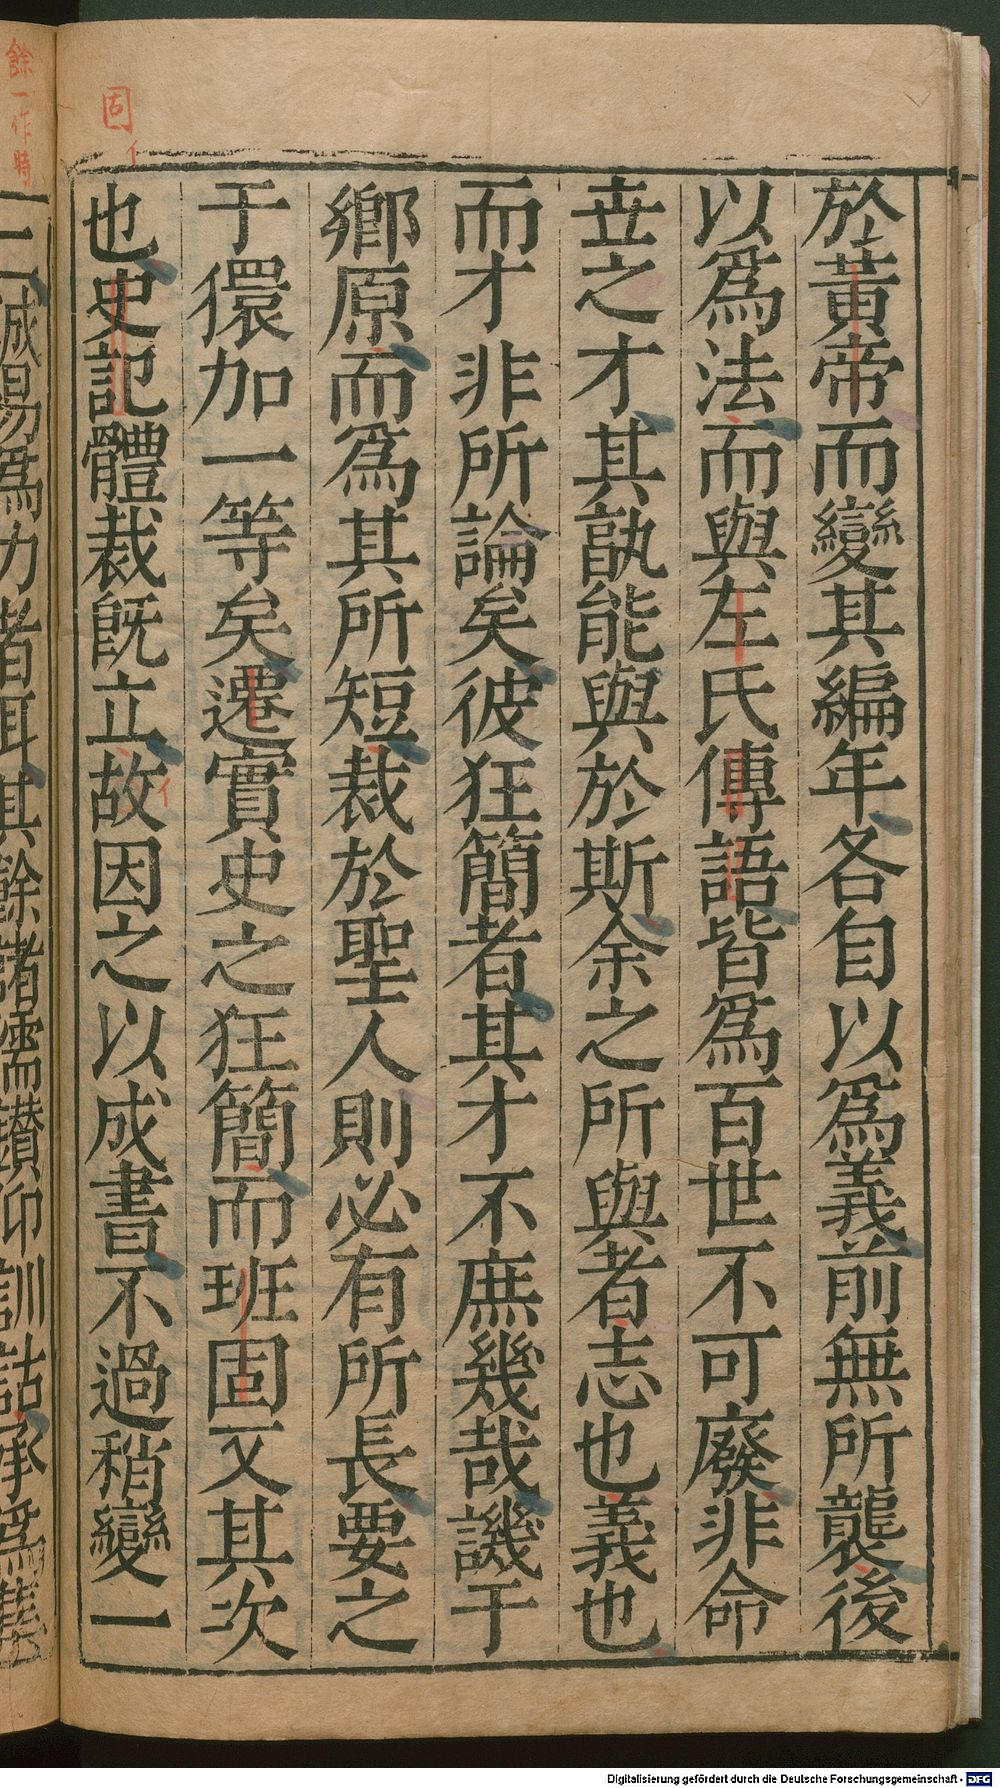 於黃帝而變其編年各自以爲義前無所襲後
以爲法而與左氏傳語皆爲百世不可廢非命
世之才其孰能與於斯余之所與者志也義也
而才非所論矣彼狂簡者其才不庶幾哉譏于
鄉原而爲其所短裁於聖人則必有所長要之
于儇加一等矣遷實史之狂簡而班固又其次
也史記體裁既立故因之以成書不過稍變一
固イ
イ
餘一作時
Digitalisierung gefördert durch die Deutsche Forschungsgemeinschaft - DFG